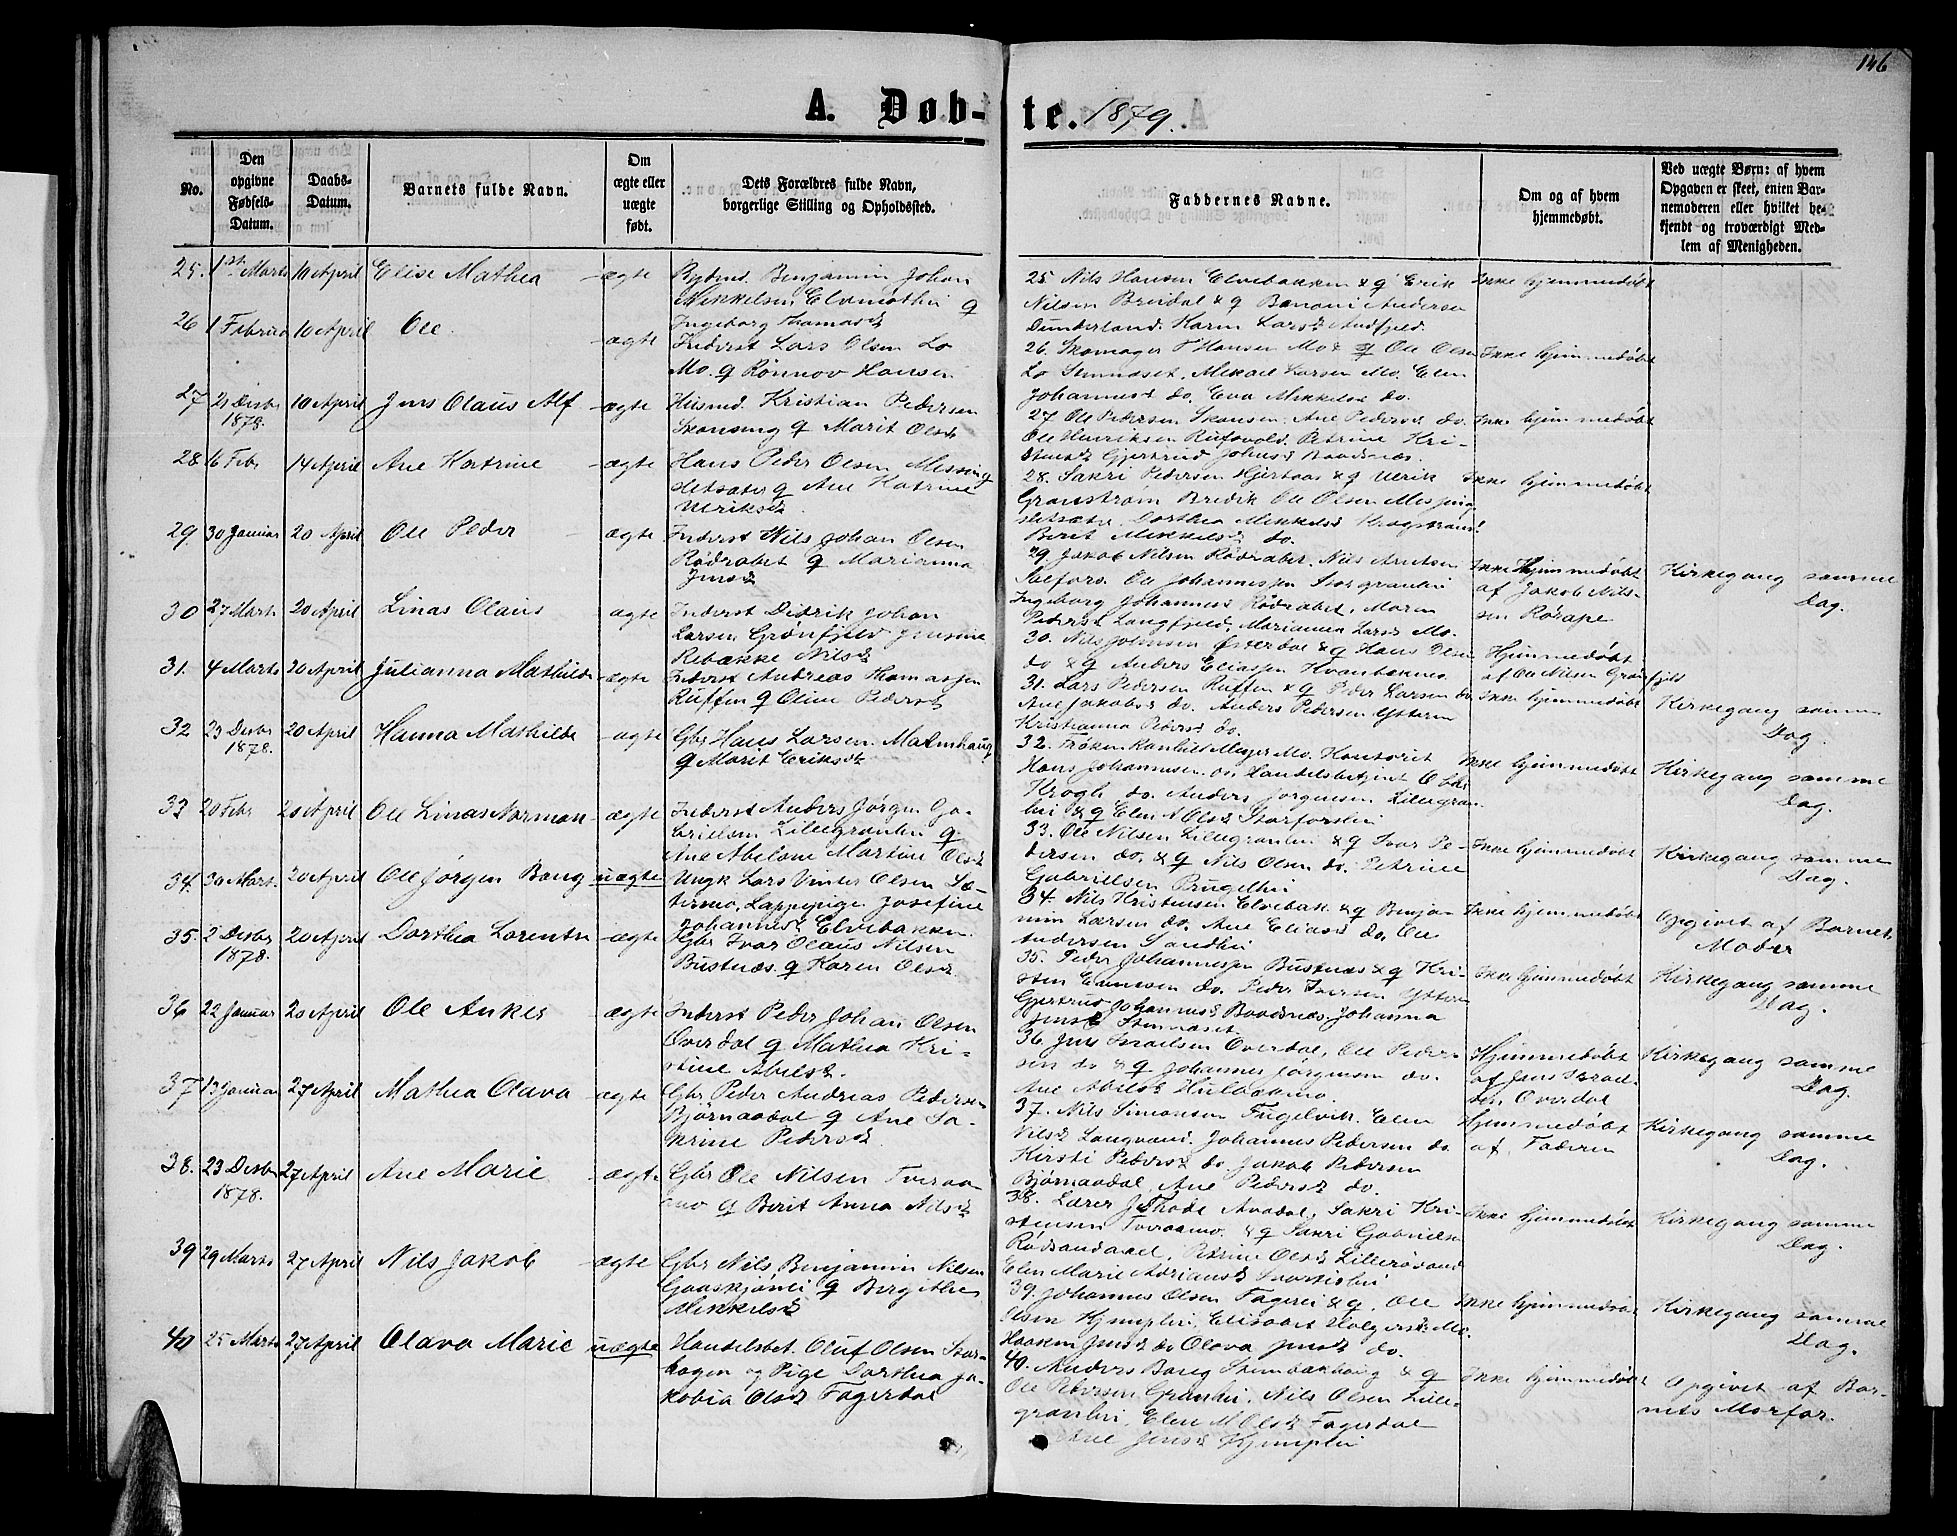 146
A. Døb-te. 1879.
No.
Den opgivne Fødsels-Datum.
Daabs-Datum.
Barnets fulde Navn.
Om ægte eller uægte født.
Dets Forældres fulde Navn, borgerlige Stilling og Opholdssted.
Faddernes Navne.
Om og af hvem hjemmedøbt.
Ved uægte Børn: af hvem Opgaven er skeet, enten Barnemoderen eller hvilket bekjendt og troværdigt Medlem af Menigheden.
25. 1ste Marts 10 April Elise Mathea ægte
Benjamin Johan
Mikkelsen
Ingeborg Thomasd
25. Nils Hansen Elvebakken & q Erik
Nilsen Bredal & q Andersen
Dunderland. Karen Larsd
Ikke hjemmedøbt
26 1 Februar 10 April Ole ægte
Inderst Lars Olsen Lo
Mo. q Rønnov Hansen
26. Skomager Hansen Mo & q Ole Olsen
Lo Mikael Larsen Mo. Elen
Johannesd do. Eva Mikkelsd do.
Ikke hjemmedøbt
27 21 Desbr 1878. 10 April Jens Olaus Alf ægte
Husmd. Kristian Pedersen
Skonseng q Marit Olsd
27 Ole Pedersen Skonsen. Ane Pedersd do.
Ole Henriksen Petrine Kri-
stensd Gjertrud Johnsd
Ikke hjemmedøbt
28 16 Febr 14 April Ane Katrine ægte
Hans Peder Olsen Messing
sletsæter q Ane Katrine
Ulriksd.
28. Sakri Pedersen Hjertaas & q Ulrik
Granstrøm Bredik Ole Olsen Messing
sletsætr. Dorthea Mikkelsd Krogstrand
Berit Mikkelsd do.
Ikke hjemmedøbt
29. 30 Januar 20 April Ole Peder ægte
Inderst Nils Johan Olsen
Rødrabet q Marianna
Jensd
29. Jakob Nilsen Rødrabet. Nils Arntsen
Selfors. Ole Johannessen Storgranli
Ingeborg Johannesd Rødrabet. Maren
Pedersd Langfjeld, Marianna Larsd Mo.
Ikke Hjemmedøbt
af Jakob Nils-
sen
Kirkegang samme
Dag.
30 27 Marts 20 April Linas Olaus ægte
Inderst Didrik Johan
Larsen Grønfjeld Jensine
Rebække Nilsd
30. Nils Johnsen Østerdal & q Hans Olsen
do & q Anders Eliassen
Hjemmedøbt
af Ole Nilsen Grønfjeld
31. 4 Marts 20 April Julianna Mathilde ægte
Inderst Andreas Thomassen
Ruffen q Oline Pedersd
31. Lars Pedersen Ruffen & q Peder Larsen do
Ane Jakobsd do. Anders Pedersen Yttern
Kristianna Pedersd do.
Ikke hjemmedøbt
Kirkegang samme
Dag.
32 23 Desbr 1878. 20 April Hanna Mathilde ægte
Gbr Hans Larsen. Malmhaug
q Marit Eriksd
32. Frøken Meyer Mo. Kontorist
Hans Johannesen. do. Handelsbetjent
Krogh do. Anders Jørgensen Lillegran-
li & q Elen Olsd Storforshei
Ikke hjemmedøbt
Kirkegang samme
Dag.
33 20 Febr 20 April Ole Linas Norman ægte
Inderst Anders Jørgen Ga-
brielsen Lillegranli q
Ane Abelone Martine Olsd
33. Ole Nilsen Lillegranli & q Ivar Pe-
dersen do. & q Nils Olsen do. Petrine
Gabrielsen
Ikke hjemmedøbt
Kirkegang samme
Dag.
34. 30 Mart. 20 April Ole Jørgen Bang uægte
Ungk Lars Vinter Olsen Sæ-
termo, Lappepige Josefine
Johannesd Elvebakken
34. Nils Kristensen Elvebak. & q Benja
min Larsen do. Ane Eliasd do. Ole
Andersen Sandhei
Ikke hjemmedøbt
Opgivet af Barnets
Moder
35. 2 Desbr 1878. 20 April Dorthea Lorentse ægte
Gbr Ivar Olaus Nilsen
Bustnæs. q Karen Olsd.
35. Peder Johannessen Bustnæs & q Kri-
sten Evensen do. Peder Iversen Yttern
Gjertrud Johannesd Baadsnæs. Johanna
Jensd Stennæset
Ikke hjemmedøbt
Kirkegang samme
Dag.
36 22 Januar 20 April Ole Anker ægte
Inderst Peder Johan Olsen
Overdal q Mathea Kri-
stine Abelsd.
36. Jens Israelsen Overdal, Ole Peder-
sen do & q Johannes Jørgensen do.
Ane Abelsd
Hjemmedøbt
af Jens Israel-
sen, Overdal
Kirkegang samme
Dag.
37 13 Januar 27 April Mathea Olava ægte
Gbr Peder Andreas Pedersen
Bjørnaadal q Ane Sa-
krine Pedersd.
37. Nils Simonsen Fugelvik. Elen
Nilsd Langvand. Johannes Pedersen do.
Kirsti Pedersd do. Jakob Pedersen
Bjørnaadal, Ane Pedersd do.
Hjemmedøbt
af Faderen
Kirkegang samme
Dag.
38. 23 Desbr 1878. 27 April Ane Marie ægte
Gbr Ole Nilsen Tveraa
mo q Berit Anna Nilsd
38. Lærer J Thode Avadal. Sakri Kri-
stensen Tveraamo. & q Sakri Gabrielsen
Rødsandaael, Petrine Olsd Lillerøsand
Elen Marie Adriansd
Ikke hjemmedøbt
Kirkegang samme
Dag.
39 29 Marts 27 April Nils Jakob ægte
Gbr Nils Benjamin Nilsen
q Bergithe
Mikkelsd
39. Johannes Olsen Fagerli & q. Ole
Olsen Hjempli. Elisabet Holgersd. Mo.
Haaken Jensd do Olava Jensd do.
Ikke hjemmedøbt
Kirkegang samme
Dag.
40 25 Marts 27 April Olava Marie uægte
Handelsbet. Oluf Olsen Stor-
hagen og Pige Dorthea Ja-
kobia Olsd Fagerdal
40. Anders Bang Stenbækhaug & q
Ole Pedersen Granhei. Nils Olsen Lille-
granhei. Elen M Olsd Fagerdal
Ane Jensd Hjempli
Ikke hjemmedøbt
Opgivet af Bar-
nets Morfar.